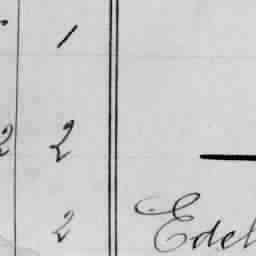 1
2 2
2 Edel